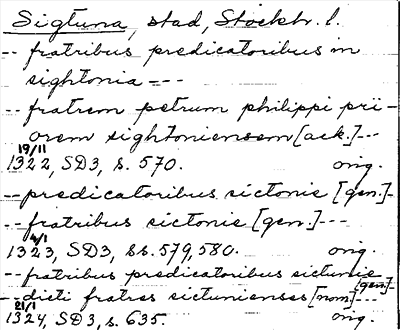 Sigtuna, stad, Stockh. l.
-- fratribus predicatoribus in
sightonia ---
-- fratrem petrum philippi pri-
orem sightoniensem [ack.]---
19/11
1322, SD3, s. 570. orig.
-- predicatoribus sictonie [gen.]-
-- fratribus sictonie [gen.]---
4/1
1323, SD3, ss. 579, 580. orig.
-- fratribus predicatoribus sictunie
[gen]-
-- dicti fratres sictunienses [nom]---
21/1
1324, SD3, s. 635. orig.